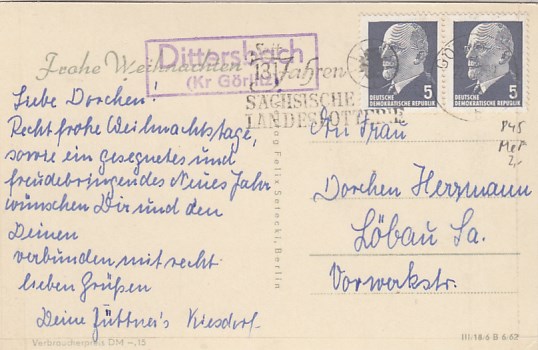 Frohe Weihnachten
Dittersbach
(Kr Görlitz)
Seit
1817 Jahren
SÄCHSISCHE
LANDESLOTTERIE
GÖ
5
DEUTSCHE
DEMOKRATISCHE REPUBLIK
5
DEUTSCHE
DEMOKRATISCHE REPUBLIK
Liebe Dorchen!
Recht frohe Weihnachtstage,
sowie ein gesegnetes und
freudebringendes Neues Jahr
wünschen Dir und den
Deinen
verbunden mit recht
lieben Grüßen
Deine Jüttner's Kiesdorf
Verbraucherpreis DM -,15
Felix Setecki, Berlin
An Frau
Dorchen Herzmann
Löbau Sa.
Vorwerkstr.
845
III/18/6 B 6/62